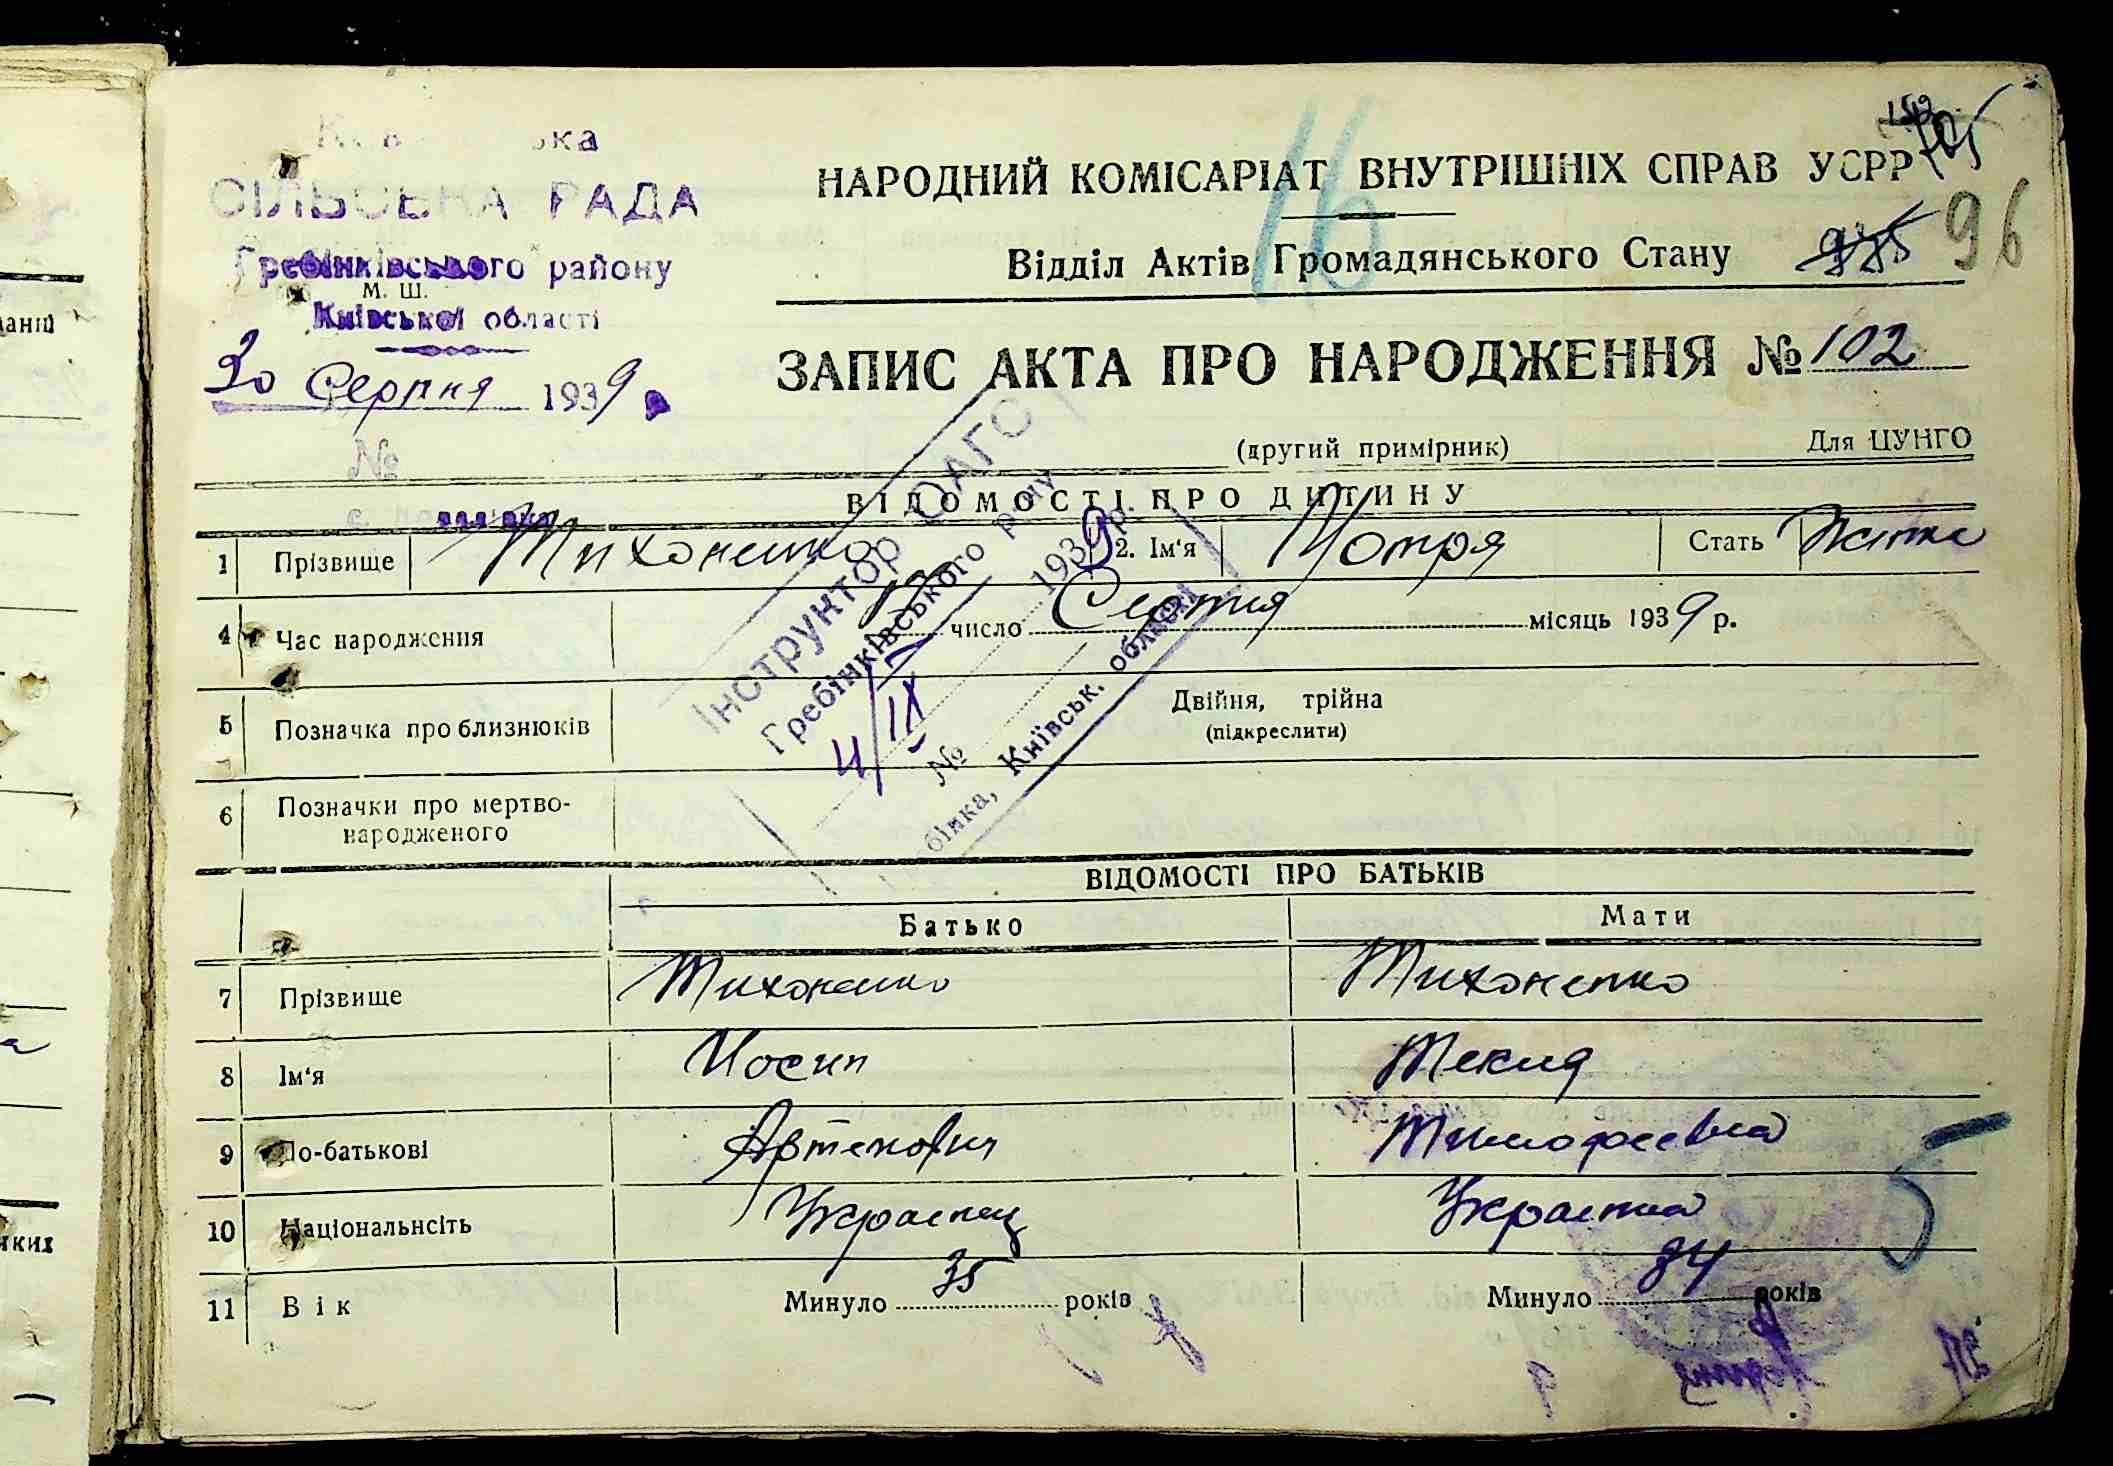 СІЛЬСЬКА РАДА
Гребінківського району
М. Ш.
Київської області
30 Серпня 1939
№
НАРОДНИЙ КОМІСАРІАТ ВНУТРІШНІХ СПРАВ УСРР
16
96
Відділ Актів Громадянського Стану
ЗАПИС АКТА ПРО НАРОДЖЕННЯ № 102
(другий примірник)
Для ЦУНГО
ВІДОМОСТІ ПРО ДИТИНУ
1 Прізвище Тихоненко 2. Ім'я Мотря Стать Жіноча
4 Час народження число Серпня місяць 1939 р.
5 Позначка про близнюків Двійня, трійна
(підкреслити)
6 Позначки про мертво-
народженого
Інструктор ОАГС
Гребінківського р-ну
4/IX 1939 р.
№
бінка, Київськ. області
ВІДОМОСТІ ПРО БАТЬКІВ
Батько Мати
7 Прізвище Тихоненко Тихоненко
8 Ім'я Иосип Текля
9 По-батькові Артемович Тимофеевна
10 Національнсіть Украінец Украінка
11 Вік Минуло 35 років Минуло 34 років